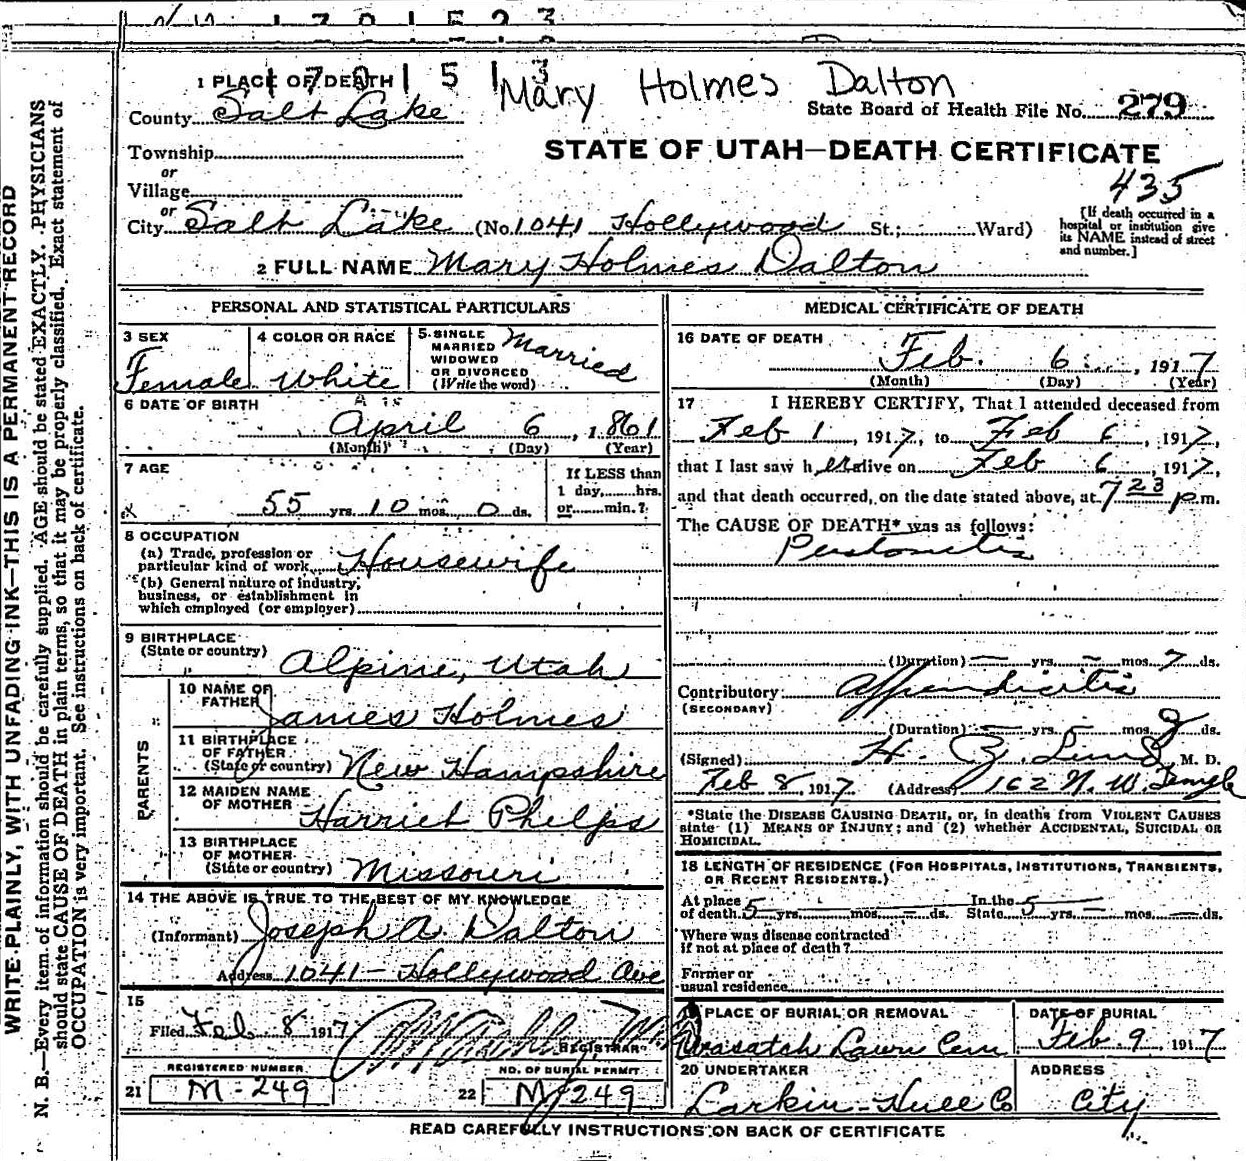 1701523
1701513
Mary Holmes Dalton
1 PLACE OF DEATH
County Salt Lake
State Board of Health File No. 279
Township
or
Village
STATE OF UTAH—DEATH CERTIFICATE
435
or
City Salt Lake (No. 1041 Hollywood St.; Ward)
[If death occurred in a hospital or institution give its NAME instead of street and number.]
2 FULL NAME Mary Holmes Dalton
PERSONAL AND STATISTICAL PARTICULARS
3 SEX
Female
4 COLOR OR RACE
White
5 SINGLE
MARRIED
WIDOWED
OR DIVORCED
(Write the word)
Married
6 DATE OF BIRTH
April 6, 1861
(Month) (Day) (Year)
7 AGE
55 yrs. 10 mos. 0 ds.
If LESS than
1 day,......hrs.
or......min.?
8 OCCUPATION
(a) Trade, profession or
particular kind of work Housewife
(b) General nature of industry,
business, or establishment in
which employed (or employer)
9 BIRTHPLACE
(State or country)
Alpine, Utah
PARENTS
10 NAME OF
FATHER
James Holmes
11 BIRTHPLACE
OF FATHER
(State or country) New Hampshire
12 MAIDEN NAME
OF MOTHER
Harriet Phelps
13 BIRTHPLACE
OF MOTHER
(State or country) Missouri
14 THE ABOVE IS TRUE TO THE BEST OF MY KNOWLEDGE
(Informant) Joseph A. Dalton
Address 1041 - Hollywood Ave
15
Filed Feb 8 1917
REGISTRAR
REGISTERED NUMBER
21 M-249
NO. OF BURIAL PERMIT
22 M 249
MEDICAL CERTIFICATE OF DEATH
16 DATE OF DEATH
Feb. 6, 1917
(Month) (Day) (Year)
17 I HEREBY CERTIFY, That I attended deceased from
Feb 1, 1917, to Feb 6, 1917,
that I last saw her alive on Feb 6, 1917,
and that death occurred, on the date stated above, at 7 23 p.m.
The CAUSE OF DEATH* was as follows:
Peritonitis
(Duration) — yrs. — mos. 7 ds.
Contributory Appendicitis
(SECONDARY)
(Duration) — yrs. mos. ds.
(Signed) H. Z. Lund, M. D.
Feb 8, 1917 (Address) 162 N. W. Temple
*State the DISEASE CAUSING DEATH, or, in deaths from VIOLENT CAUSES
state (1) MEANS OF INJURY; and (2) whether ACCIDENTAL, SUICIDAL OR
HOMICIDAL.
18 LENGTH OF RESIDENCE (FOR HOSPITALS, INSTITUTIONS, TRANSIENTS,
OR RECENT RESIDENTS.)
At place
of death 5 yrs. mos. — ds. In the State 5 yrs. — mos. — ds.
Where was disease contracted
if not at place of death?
Former or
usual residence
19 PLACE OF BURIAL OR REMOVAL
Wasatch Lawn Cem
DATE OF BURIAL
Feb. 9 1917
20 UNDERTAKER
Larkin-Hull Co
ADDRESS
City
READ CAREFULLY INSTRUCTIONS ON BACK OF CERTIFICATE
WRITE PLAINLY, WITH UNFADING INK—THIS IS A PERMANENT RECORD
N. B.—Every item of information should be carefully supplied. AGE should be stated EXACTLY. PHYSICIANS
should state CAUSE OF DEATH in plain terms, so that it may be properly classified. Exact statement of
OCCUPATION is very important. See instructions on back of certificate.